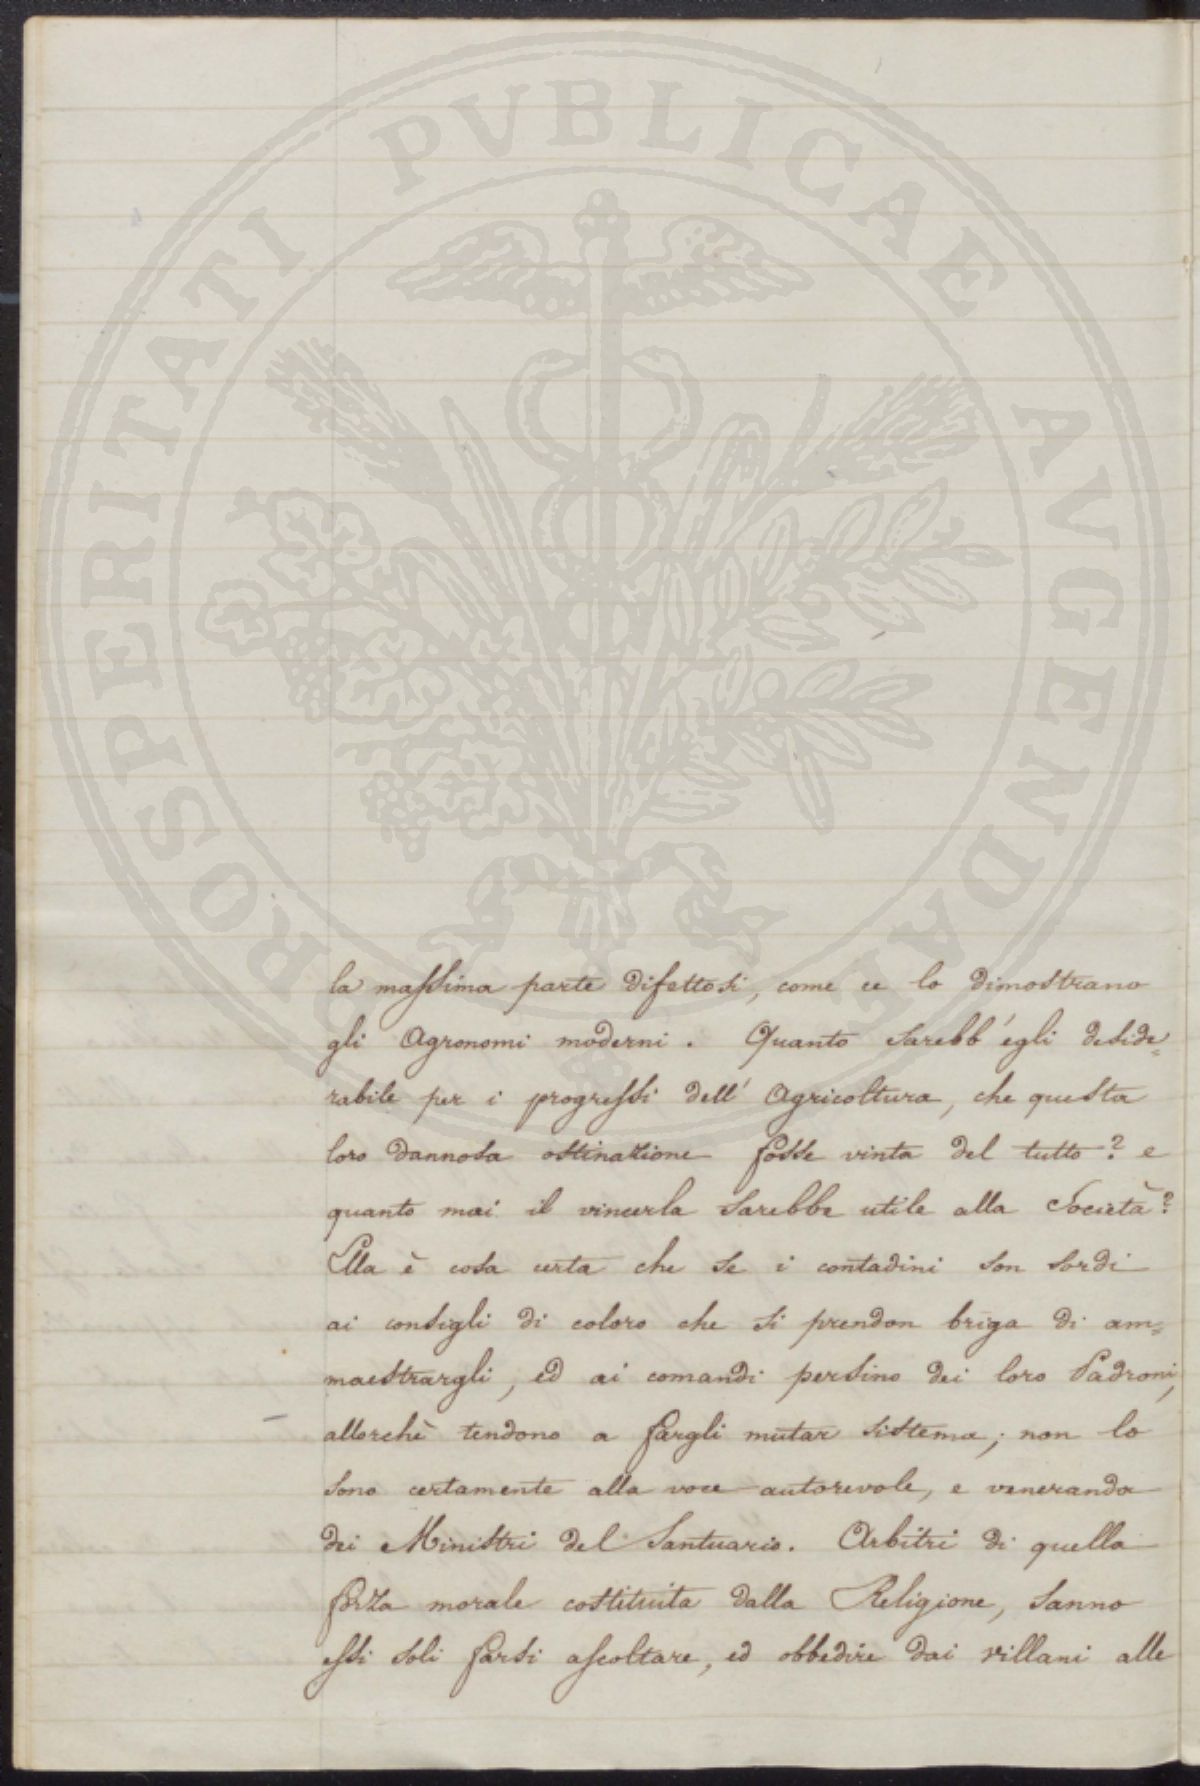 PROSPERITATI PUBLICAE AVGENDAE
la massima parte difettosi, come ce lo dimostrano
gli Agronomi moderni. Quanto sarebb'egli deside=
rabile per i progressi dell' Agricoltura, che questa
loro dannosa ostinazione fosse vinta del tutto? e
quanto mai il vincerla sarebbe utile alla Società?
Ella è cosa certa che se i contadini son sordi
ai consigli di coloro che si prendon briga di am=
maestrargli, ed ai comandi persino dei loro Padroni,
allorchè tendono a fargli mutar sistema; non lo
sono certamente alla voce autorevole, e veneranda
dei Ministri del Santuario. Arbitri di quella
forza morale costituita dalla Religione, sanno
essi soli farsi ascoltare, ed obbedire dai villani alle